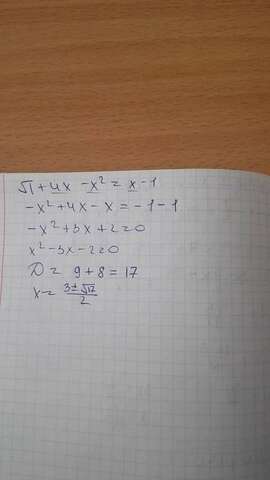 √1 + 4x - x² = x - 1
- x² + 4x - x = - 1 - 1
- x² + 3x + 2 = 0
x² - 3x - 2 = 0
D = 9 + 8 = 17
x = (3 ± √17)/2